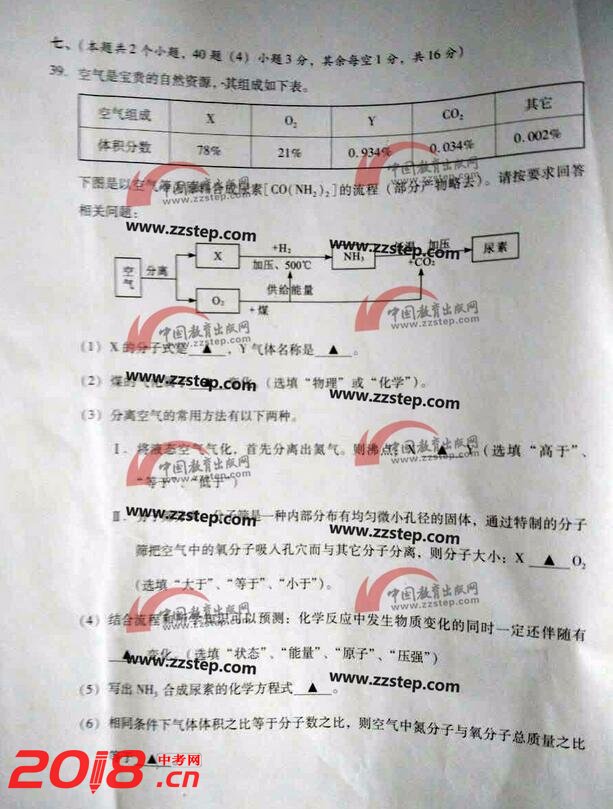 七、(本题共2个小题，40题(4)小题3分，其余每空1分，共16分)
39. 空气是宝贵的自然资源，其组成如下表。
空气组成 X O₂ Y CO₂ 其它
体积分数 78% 21% 0.934% 0.034% 0.002%
下图是以空气 合成尿素[CO(NH₂)₂]的流程(部分产物略去)。请按要求回答
相关问题：
空气 分离 X +H₂ 加压、500℃ NH₃ 加压 +CO₂ 尿素
O₂ +煤 供给能量
(1) X的分子式是 ▲ ，Y气体名称是 ▲ 。
(2) 煤的气化 ▲ 变化 (选填“物理”或“化学”)。
(3) 分离空气的常用方法有以下两种。
Ⅰ. 将液态空气气化，首先分离出氮气。则沸点：X ▲ Y (选填“高于”、
“等于”、“低于”)
Ⅱ. 分子筛 分子筛是一种内部分布有均匀微小孔径的固体，通过特制的分子
筛把空气中的氧分子吸入孔穴而与其它分子分离，则分子大小：X ▲ O₂
(选填“大于”、“等于”、“小于”)。
(4) 结合流程和所学知识可以预测：化学反应中发生物质变化的同时一定还伴随有
▲ 变化。(选填“状态”、“能量”、“原子”、“压强”)
(5) 写出NH₃合成尿素的化学方程式 ▲ 。
(6) 相同条件下气体体积之比等于分子数之比，则空气中氮分子与氧分子总质量之比
等于 ▲
中国教育出版网
www.zzstep.com
2018中考网.cn